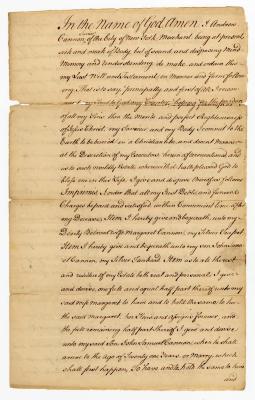 In the Name of God Amen I Andrew
Cannon, of the City of New York Merchant being at present
sick and weak of Body but of sound and disposing Mind
Memory and Understanding do make and ordain this
my Last Will and Testament in Manner and form follow-
ing. That is to say, principally and first of all I recom-
mend my Soul to God my Creator, hoping for the pardon
of all my Sins thro the Merits and perfect Righteousness
of Jesus Christ my Saviour and my Body I commit to the
Earth to be buried in a Christian like and decent Manner
at the Discretion of my Executors herein after named, and
as to such worldly Estate wherewith it hath pleased God to
bless me in this Life I give and dispose thereof as follows
Imprimis, I order that all my Just Debts and funeral
Charges be paid and satisfied within Convenient time after
my Decease, Item I hereby give and bequeath unto my
Dearly Beloved Wife Margaret Cannon, my Silver Tea pot
Item I hereby give and bequeath unto my son John Samu-
el Cannon my Silver Tankard Item as to all the rest
and residue of my Estate both real and personal, I give
and devise, one full and equal half part thereof unto my
said wife Margaret to have and to hold the same to her
the said Margaret her Heirs and Assigns forever, and
the full remaining half part thereof I give and devise
unto my said Son John Samuel Cannon when he shall
arrive to the Age of Twenty one Years or Marry, which
shall first happen, To have and to hold the same to him
and